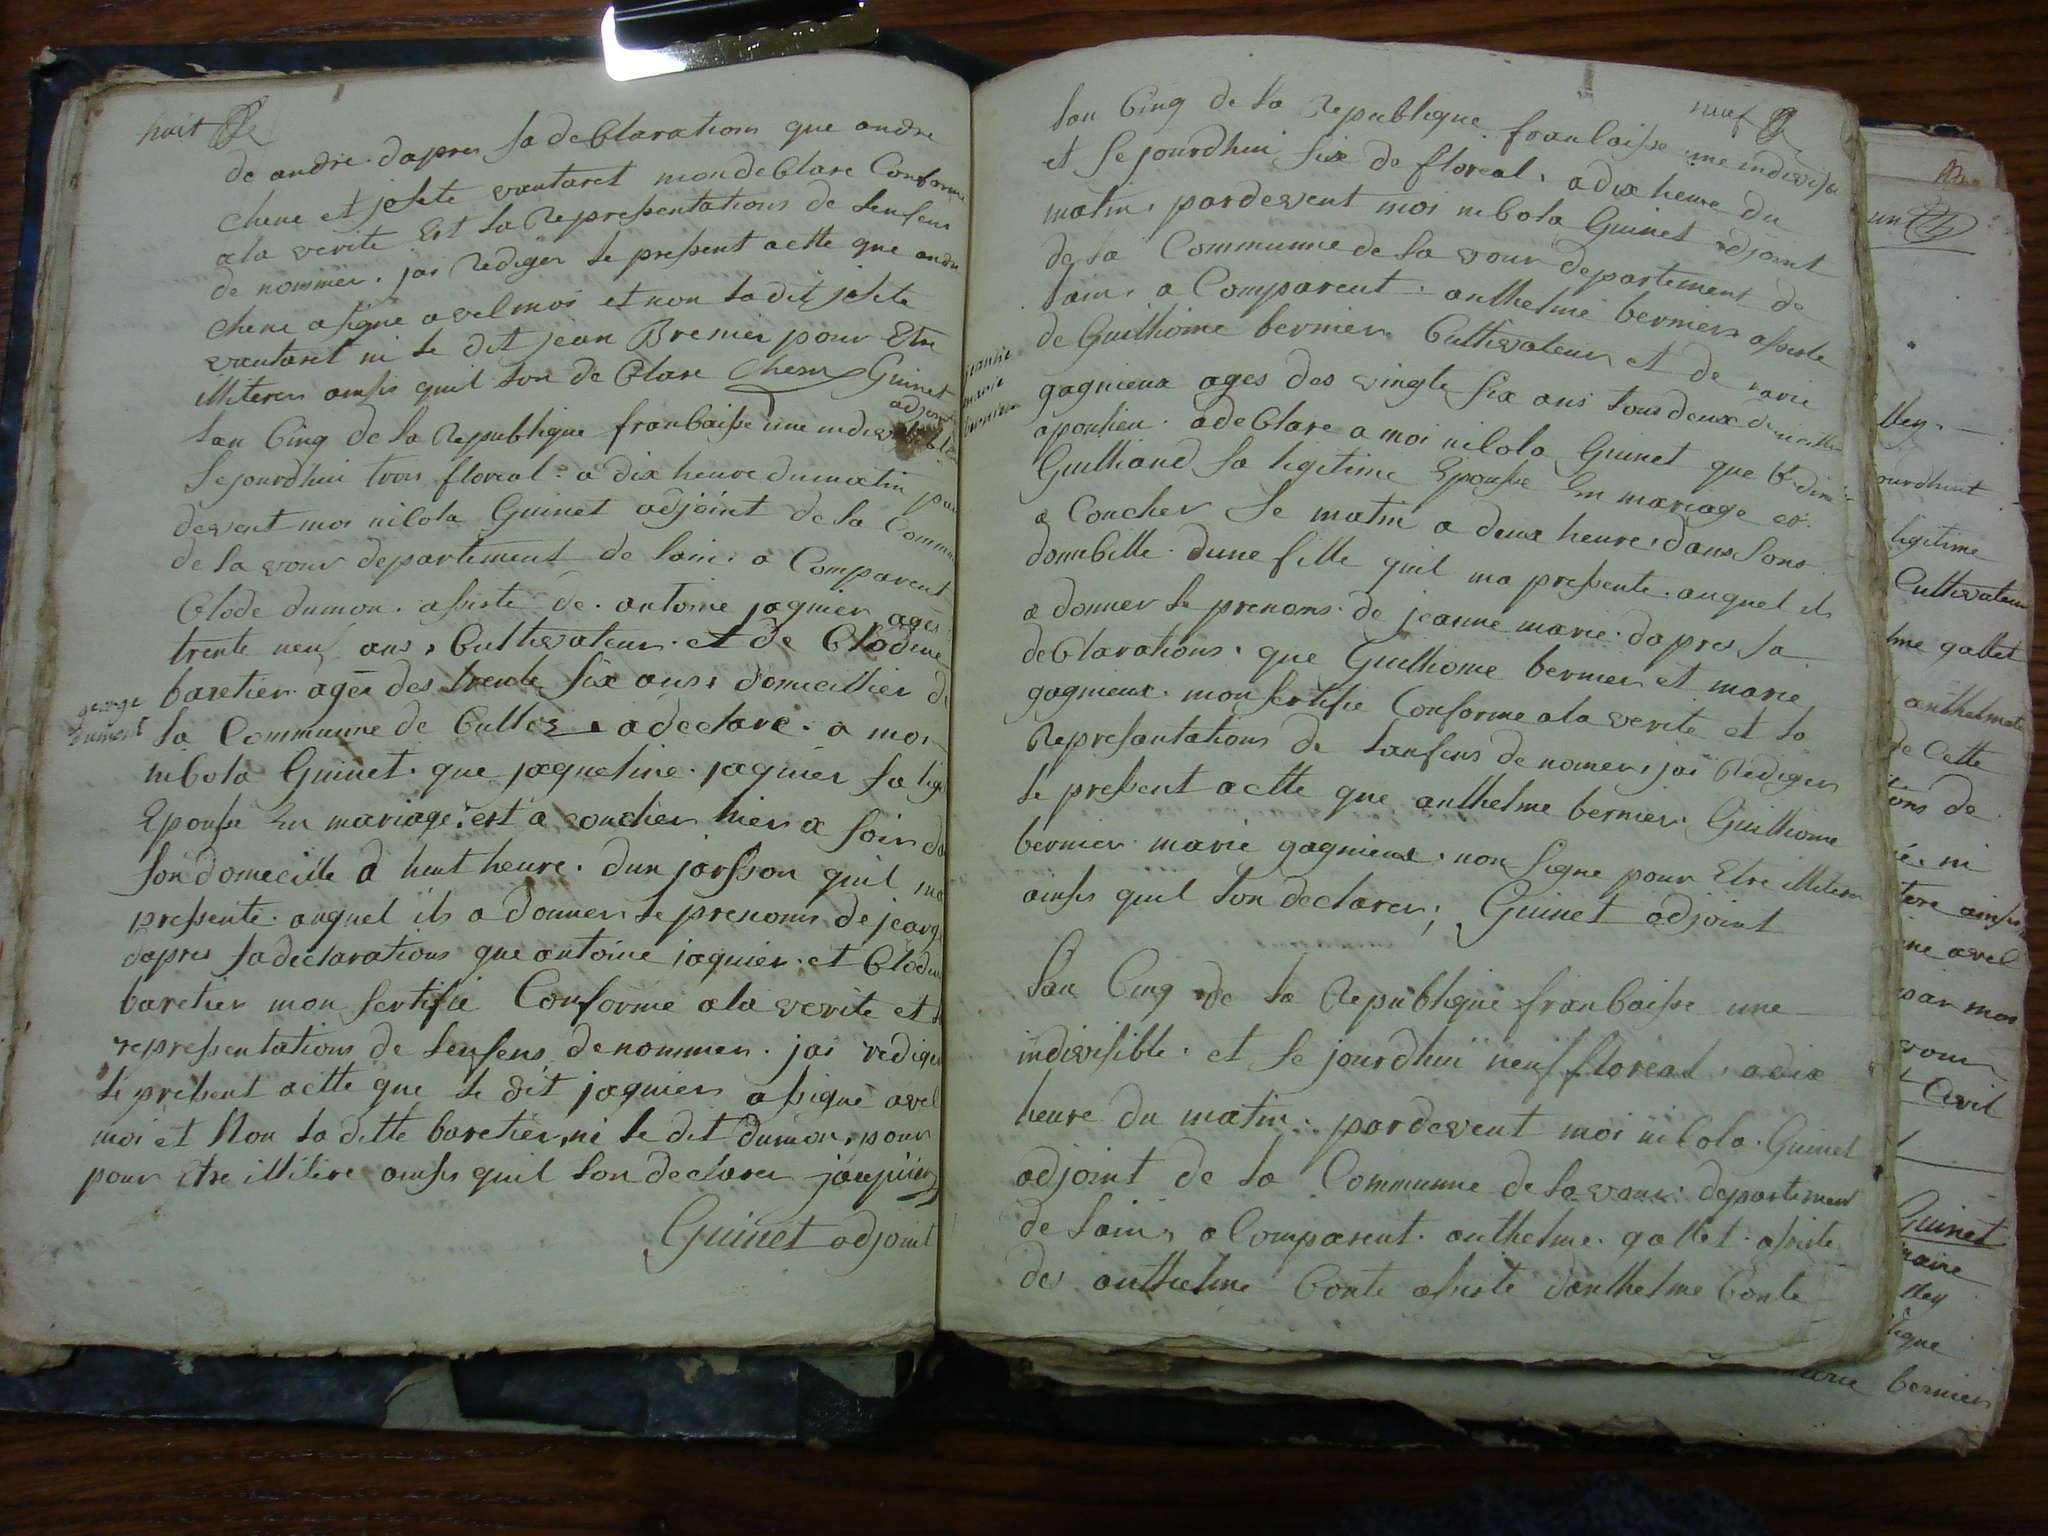 huit
de andre. dapres sa deClarations que andre
chene et josete vautaret mon deClare Conforme
a la verite Est la Represtentations de lenfens
de nommer. jai Rediger le pressent actte que andre
chene a signe avel moi et non la dit josete
vautaret ni le dit jean Brenier pour Etre
illiterer ainsis quil lon de Clare Chene Guinet
adjoint
lan Cinq de la Republique franCaisse une indivisible
Le jourdhui trois floreal. a dix heure du matin par
devent moi niCola Guinet adjoint de la Commu
de la vour departement de lain. a Comparent
Clode dumon. assiste de. antoine jaquier ages
trente neuf ans, Cultivateur. et de Clodine
baretier agée des trente six ans, domicillier de
george
dumont
la Commune de Culloz, a declare. a moi
niCola Guinet. que jaqueline. jaquier sa legi
Epousse En mariage. est a coucher hier a soir da
son domecille a huit heure. dun jarsson quil ma
pressente. auquel ils a donner le prenoms de jeorge
dapres sa declarations que antoine jaquier. et Clodine
baretier mon sertifie Conforme a la verite et la
repressentations de lenfens denommer. jai rediger
le pressent actte que le dit jaquier a signe avel
moi et Non la ditte baretier, ni le dit dumon, pour
pour Etre illitire ainsis quil lon declarer jaquier
Guinet adjoint
neuf
lan Cinq de la Republique franCaisse une indivisi
et le jourdhui six de floreal. a dix heure du
matin. pardevent moi niCola Guinet adjoint
de la Communne de la vour departement de
lain. a Comparent. anthelme bernier assiste
de Guilliome bernier Cultivateur et de marie
jeanne
marie
bernier
gagnieux ages des vingte six ans tous deux domicillier
a ponlieu. a deClare a moi niCola Guinet que
Guilliand sa ligitime Epousse En mariage es.
a Coucher le matin a deux heure. dans sons
domCille. dune fille quil ma pressente. auquel ils
a donner le prenoms. de jeanne marie. dapres sa
deClarations. que Guilliome bernier et marie
gagnieux. mon sertifie Conforme a la verite et la
Represantations de lanfens denomer, jai Rediger
le pressent actte que anthelme bernier. Guilliome
bernier marie gagnieux. non signe pour Etre illiterer
ainsis quil lon declarer; Guinet adjoint
lan Cinq de la Republique franCaisse une
indivisible. et le jourdhui neuf floreal. a dix
heure du matin. pardevent moi niCola. Guinet
adjoint de la Communne de la vour. departement
de lain, a Comparent. anthelme. gallet. assiste
des anthelme Conte assiste danthelme Conte
un
lley.
ourdhuit
legitime
Cultivateur
lme gallet
anthelmete
de Cette
ions de
ié. ni
tere ainsis
ine avel
par moi
vour
Civil
Guinet
maire
lley
lique
marie bernier